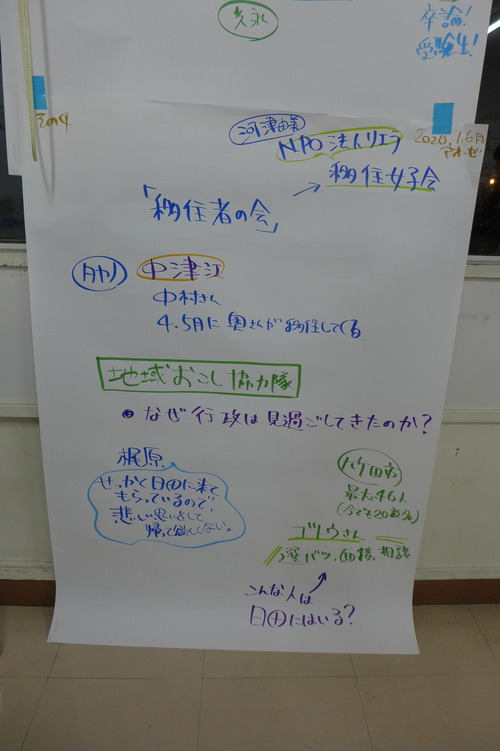 久永
卒論!
受験!
その4
2020.1.6月
アオーゼ
河津由美
NPO法人リエラ
移住女子会
「移住者の会」
中津江
中村さん
4.5月に奥さんが移住してくる
地域おこし協力隊
なぜ行政は見過ごしてきたのか?
梶原
せっかく日田に来て
もらっているので
悲しい思いをして
帰って欲しくない。
竹田市
最大46人
(今でも20数名)
ゴトウさん
選バツ、面接、相談
こんな人は
日田にはいる?